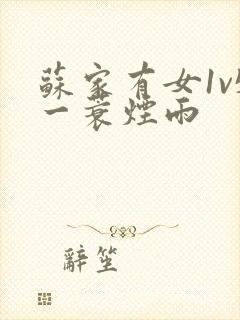 蘇家有女1v
一蓑煙雨
辭笙